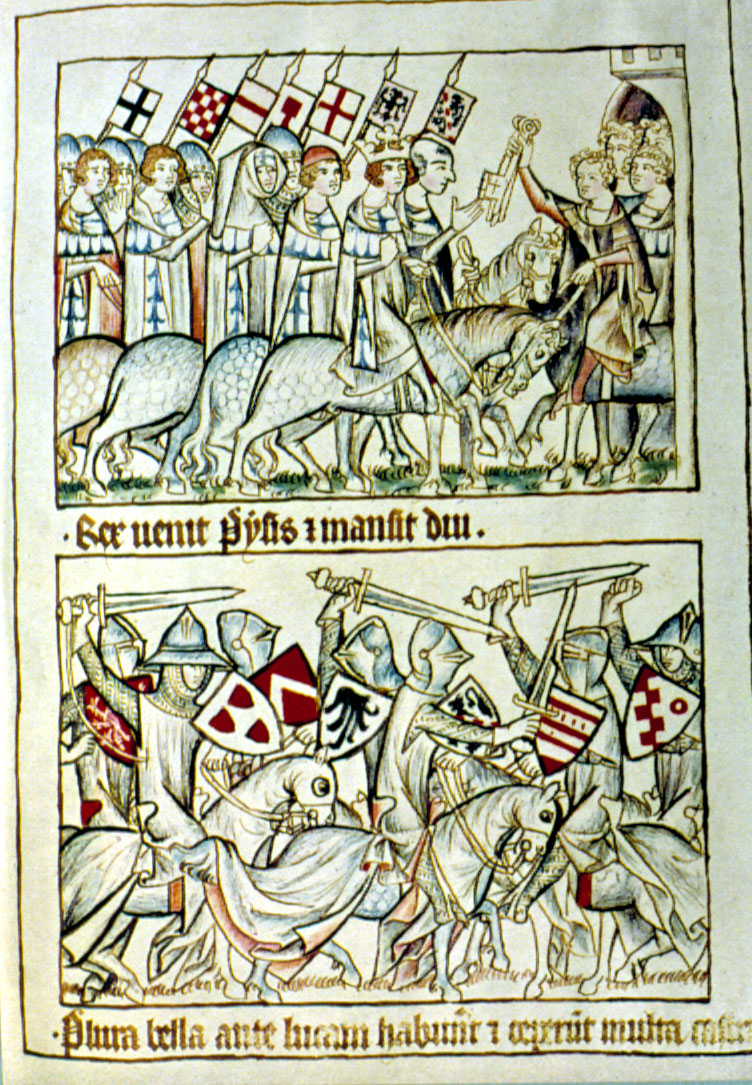 · Rex venit Pysis ⁊ mansit diu .
· Plura bella ante lucam habuūt ⁊ ceperūt multa castra